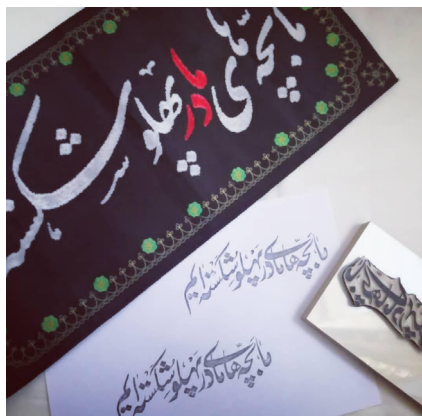 ما بچه های مادر پهلو شکسته
ما بچه های مادر پهلو شکسته ایم
ما بچه های مادر پهلو شکسته ایم